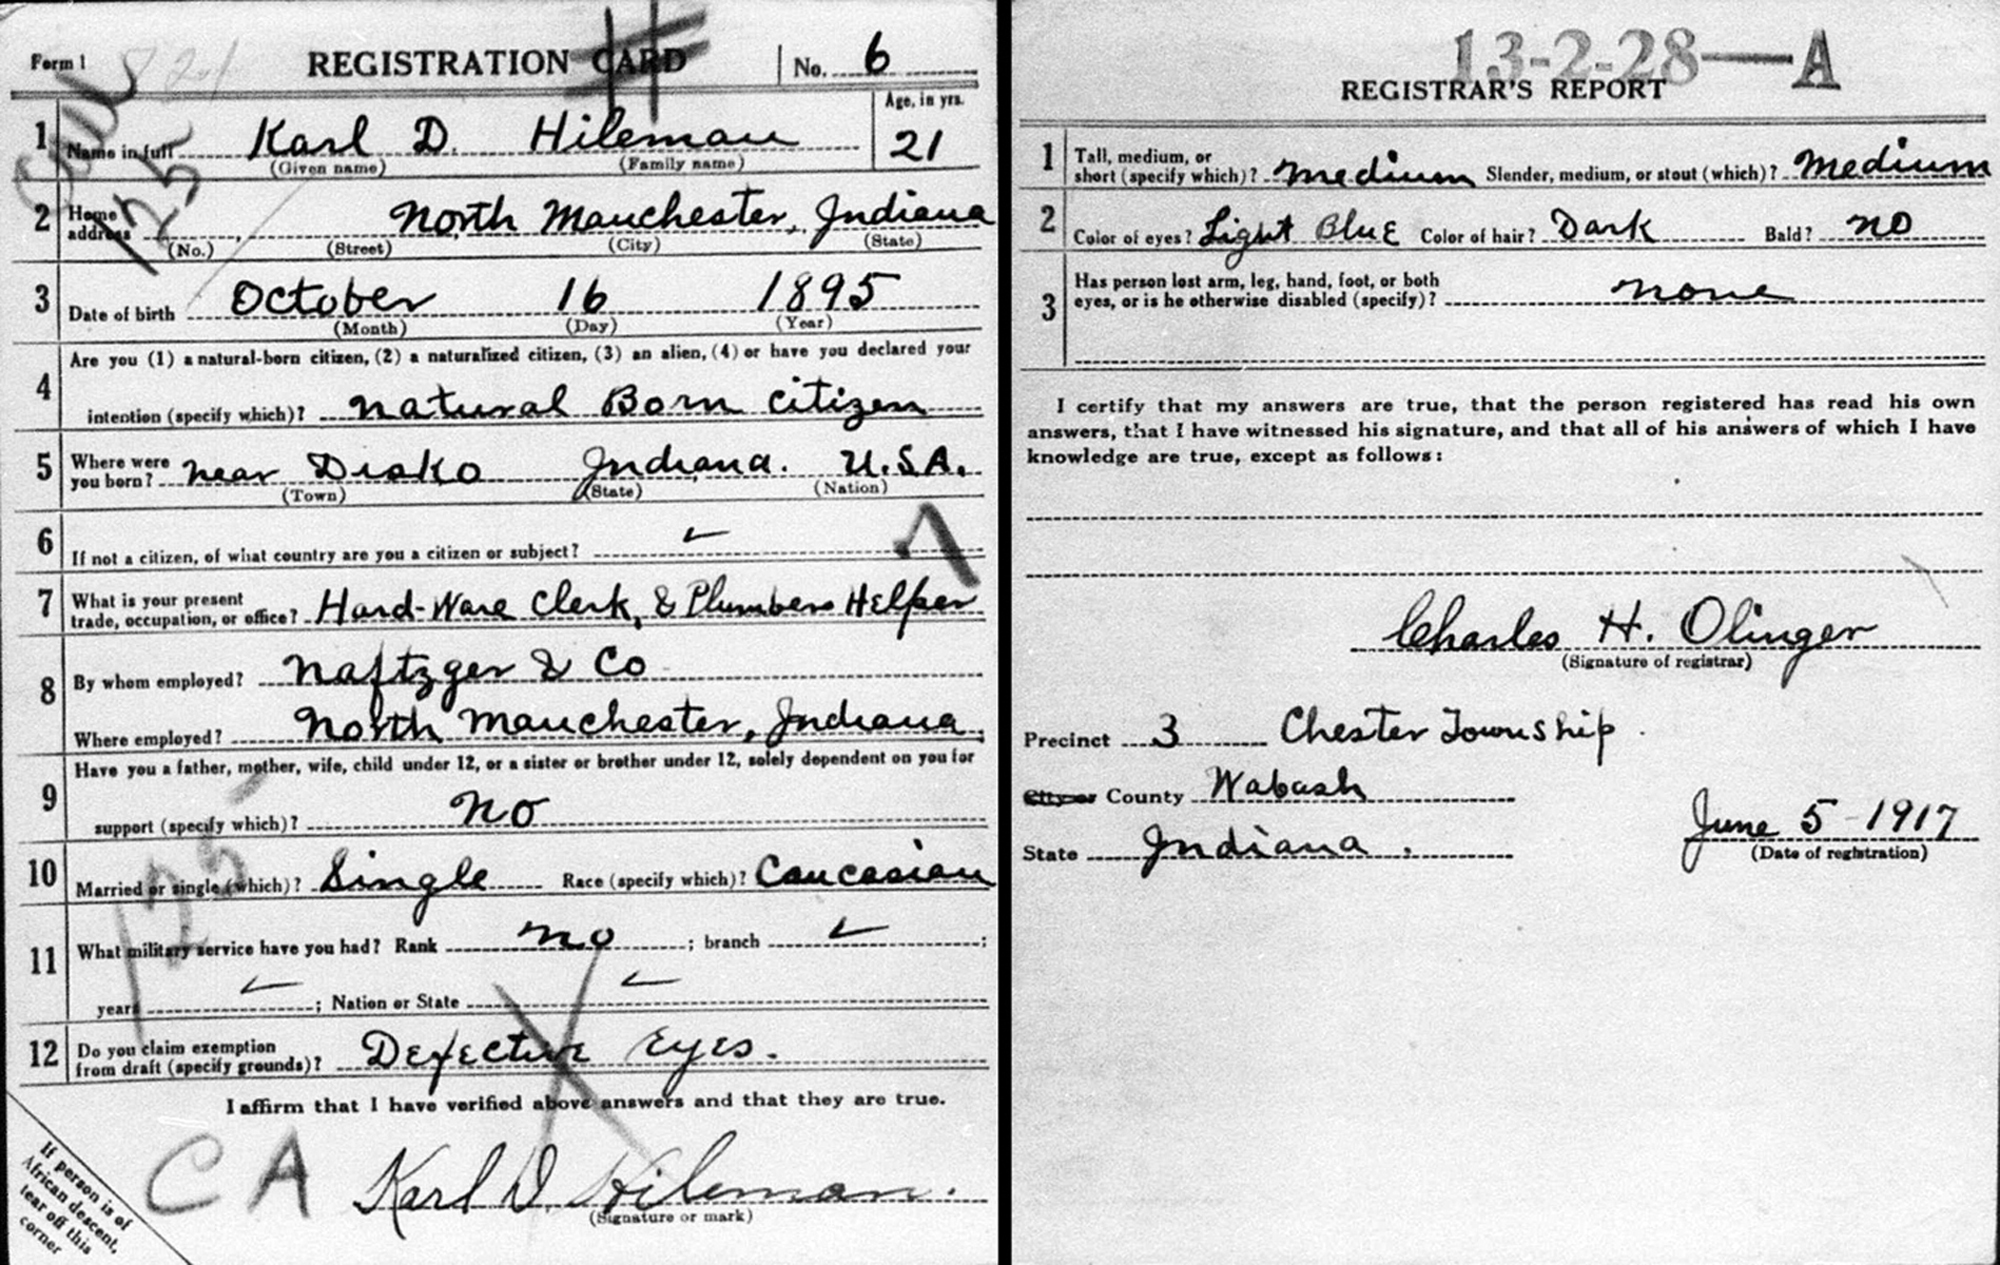 Form 1 821 REGISTRATION CARD No. 6
1 Name in full Karl D. Hileman Age, in yrs. 21
(Given name) (Family name)
125
2 Home address North Manchester, Indiana
(No.) (Street) (City) (State)
3 Date of birth October 16 1895
(Month) (Day) (Year)
4 Are you (1) a natural-born citizen, (2) a naturalized citizen, (3) an alien, (4) or have you declared your
intention (specify which)? Natural Born Citizen
5 Where were you born? near Disko Indiana. U.S.A.
(Town) (State) (Nation)
6 If not a citizen, of what country are you a citizen or subject? ✓
7 What is your present trade, occupation, or office? Hard-Ware Clerk, & Plumbers Helper
8 By whom employed? Naftzger & Co
Where employed? North Manchester, Indiana.
9 Have you a father, mother, wife, child under 12, or a sister or brother under 12, solely dependent on you for
support (specify which)? No
10 Married or single (which)? Single Race (specify which)? Caucasian
125
11 What military service have you had? Rank no ; branch ✓ ;
years ✓ ; Nation or State ✓
12 Do you claim exemption from draft (specify grounds)? Defective Eyes.
I affirm that I have verified above answers and that they are true.
C A Karl D. Hileman.
(Signature or mark)
If person is of
African descent,
tear off this
corner
13-2-28—A
REGISTRAR'S REPORT
1 Tall, medium, or short (specify which)? Medium Slender, medium, or stout (which)? Medium
2 Color of eyes? Light Blue Color of hair? Dark Bald? No
3 Has person lost arm, leg, hand, foot, or both
eyes, or is he otherwise disabled (specify)? None
I certify that my answers are true, that the person registered has read his own
answers, that I have witnessed his signature, and that all of his answers of which I have
knowledge are true, except as follows:
Charles H. Olinger
(Signature of registrar)
Precinct 3 Chester Township.
City or County Wabash
June 5-1917
State Indiana.
(Date of registration)